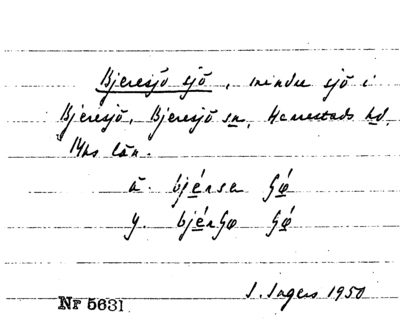 Bjeresjö sjö, mindre sjö i
Bjeresjö, Bjeresjö sn, Herrestads hd,
M-hs län.
ä. bjérsa
y.
Nr 5631
I. Ingers 1950